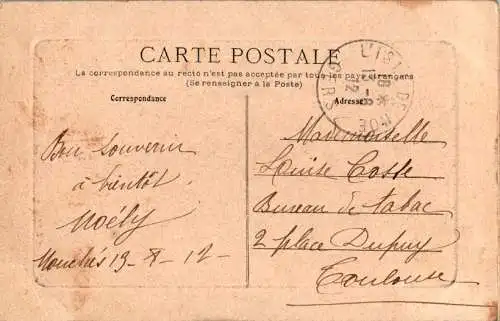 CARTE POSTALE
La correspondance au recto n'est pas acceptée par tous les pays étrangers
(Se renseigner à la Poste)
Correspondance
Adresse
Bon souvenir
à bientôt
Noëly
Monchés 19-8-12-
Mademoiselle
Louise Cosse
Bureau de tabac
2 place Dupuy
Toulouse
L'ISLE DE NOÉ
GERS